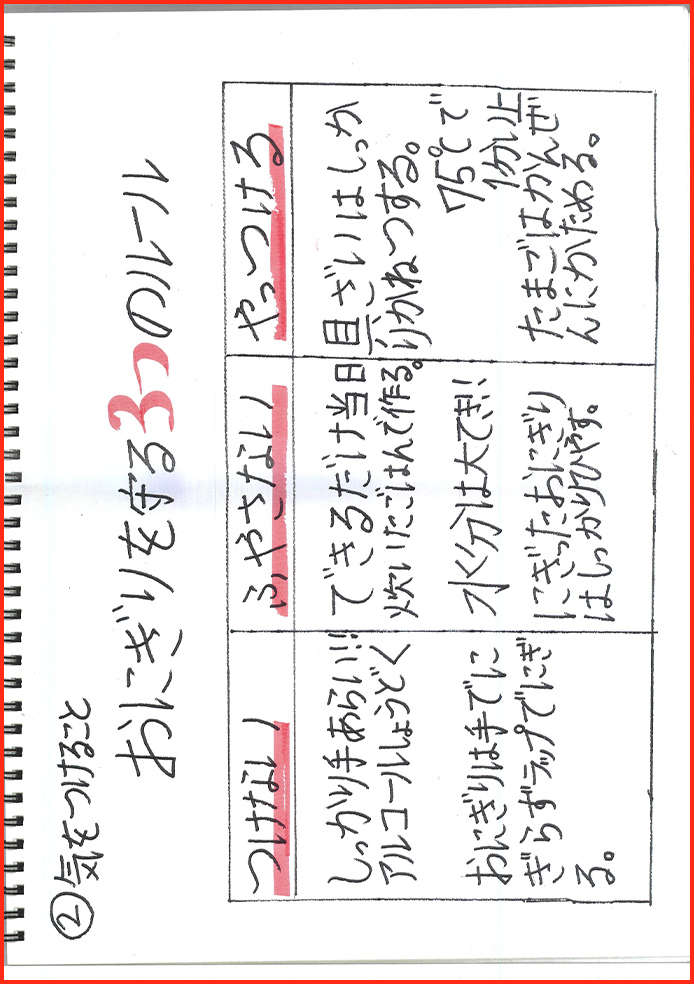 ②気をつけること
おにぎりを守る3つのルール
つけない
しっかり手あらい!!
アルコールしょうどく
おにぎりは手でに
ぎらずラップでにぎ
る。
ふやさない
できるだけ当日
炊いたごはんで作る。
水分は大てき!!
にぎったおにぎり
はしっかりひやす。
やっつける
具ざいはしっか
りかねつする。
75℃で
1分以上
たまごはかんぜ
んにかためる。